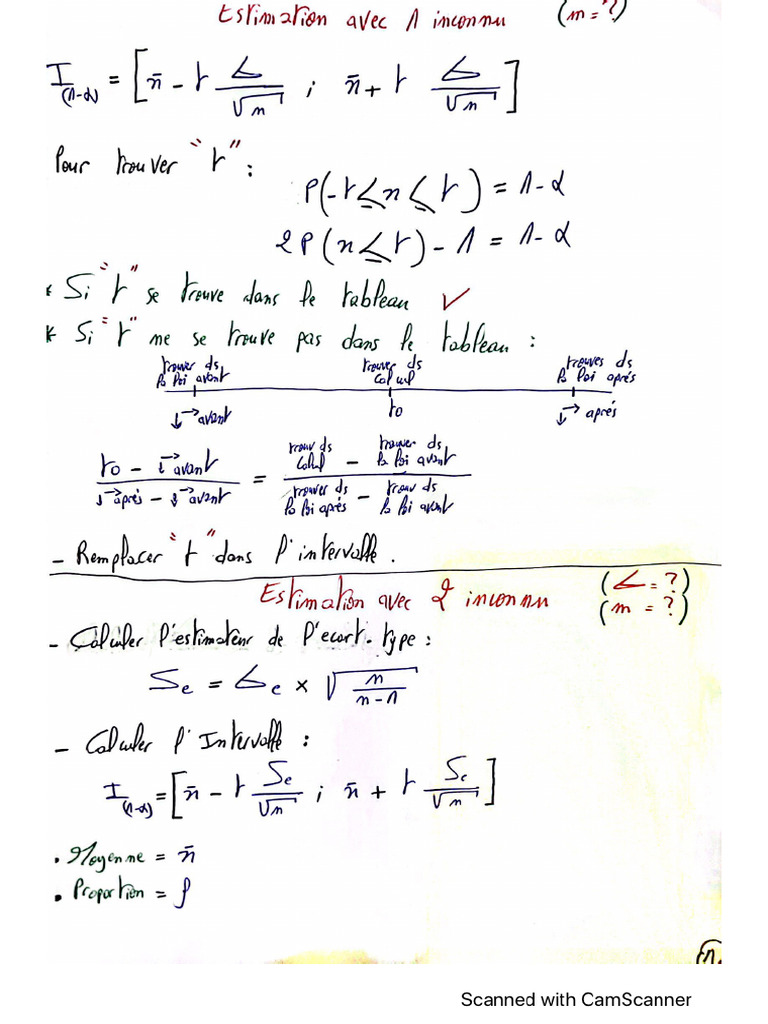 Estimation avec 1 inconnu (m = ?)
I(1-α) = [x̄ - t σ/√n ; x̄ + t σ/√n]
Pour trouver "t" :
P(-t ≤ x ≤ t) = 1-α
2P(x ≤ t) - 1 = 1-α
* Si "t" se trouve dans le tableau ✓
* Si "t" ne se trouve pas dans le tableau :
trouver ds la loi avant trouver ds calcul trouver ds la loi après
↓→ avant to ↓→ après
(to - ↓→ avant) / (↓→ après - ↓→ avant) = (trouv ds calcul - trouver ds la loi avant) / (trouver ds la loi après - trouv ds la loi avant)
- Remplacer "t" dans l'intervalle.
Estimation avec 2 inconnu (σ = ?)
(m = ?)
- Calculer l'estimateur de l'ecart-type :
Se = σe × √(n/(n-1))
- Calculer l'Intervalle :
I(1-α) = [x̄ - t Se/√n ; x̄ + t Se/√n]
• Moyenne = x̄
• Proportion = f
Scanned with CamScanner